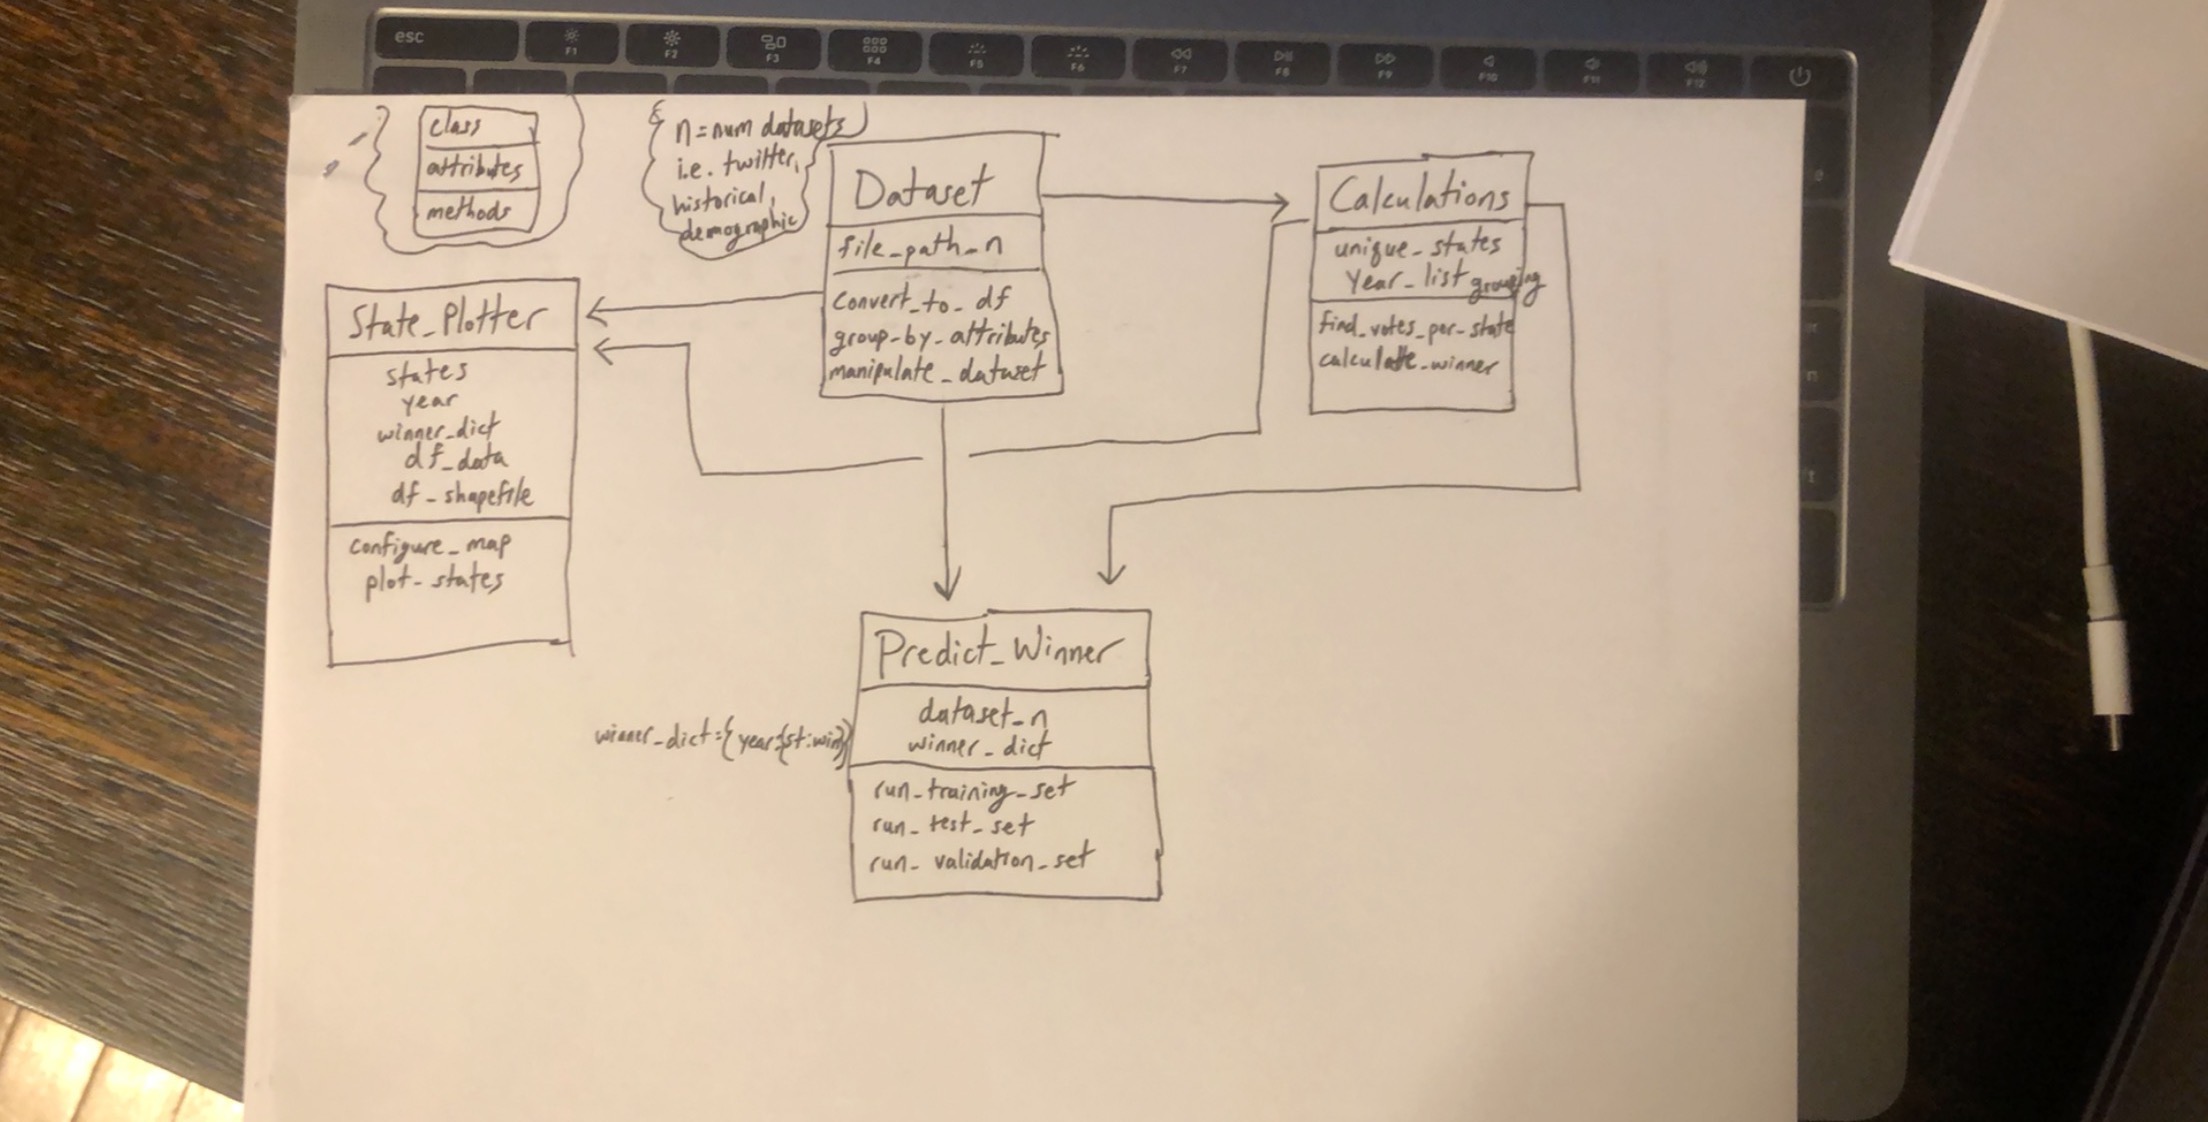 esc
F1
F2
F3
F4
F5
F6
F7
F8
F9
F10
F11
F12
class
attributes
methods
n = num datasets
i.e. twitter,
historical,
demographic
Dataset
file_path_n
convert_to_df
group_by_attributes
manipulate_dataset
Calculations
unique_states
year_list grouping
find_votes_per_state
calculate_winner
State_Plotter
states
year
winner_dict
df_data
df_shapefile
configure_map
plot_states
Predict_Winner
winner_dict={year:{st:win}}
dataset_n
winner_dict
run_training_set
run_test_set
run_validation_set